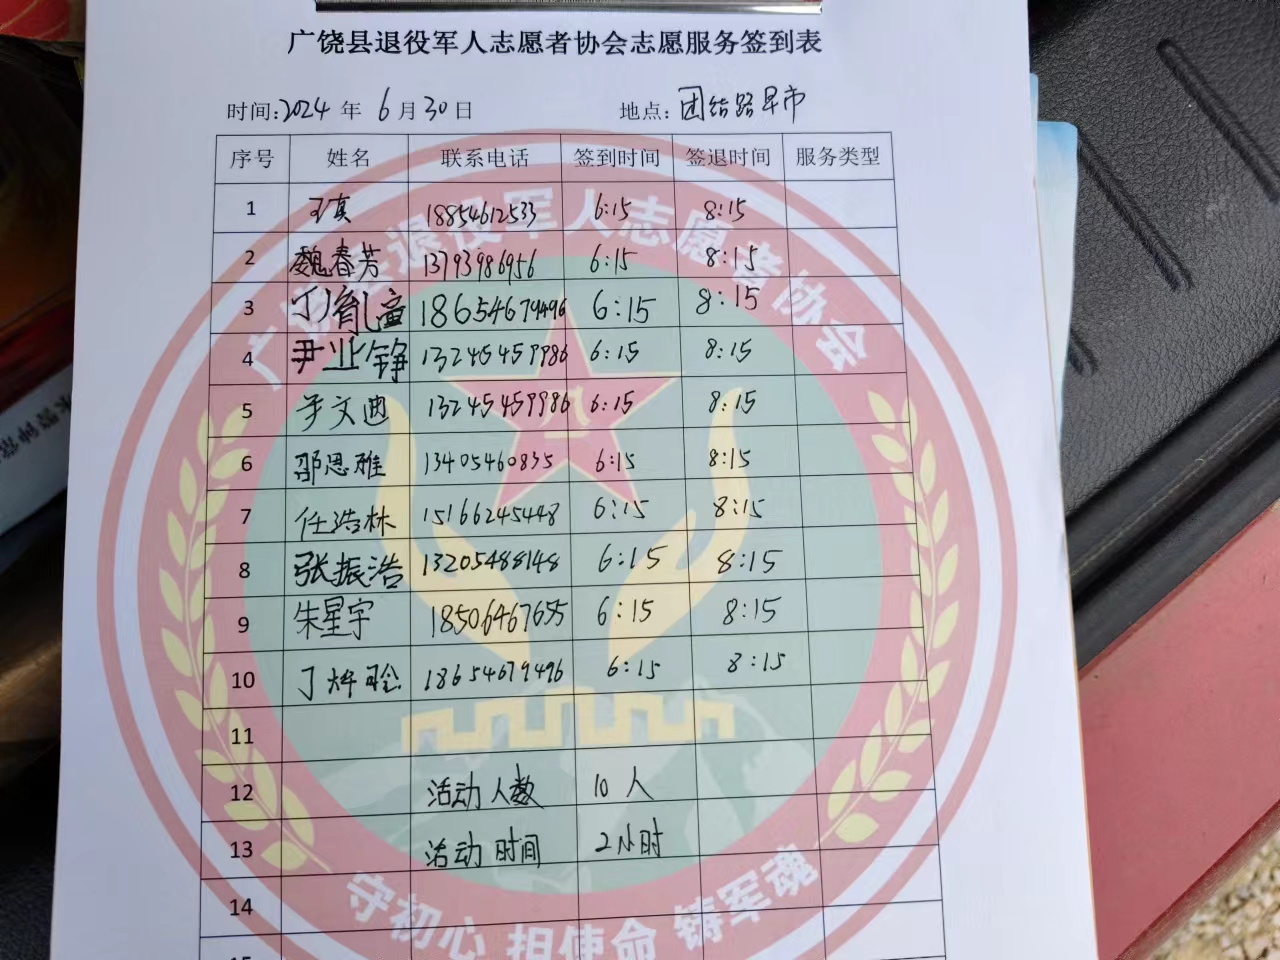 广饶县退役军人志愿者协会志愿服务签到表
时间:2024 年 6 月 30 日 地点: 团结路早市
序号 姓名 联系电话 签到时间 签退时间 服务类型
1 王真 18854612533 6:15 8:15
2 魏春芳 13793986956 6:15 8:15
3 丁 童 18654679496 6:15 8:15
4 尹业铮 13245459986 6:15 8:15
5 于文迪 13245459986 6:15 8:15
6 邵思雅 13405460835 6:15 8:15
7 任浩林 15166245448 6:15 8:15
8 张振浩 13205488148 6:15 8:15
9 朱星宇 18506467655 6:15 8:15
10 丁烨 18654679496 6:15 8:15
11
12 活动人数 10人
13 活动时间 2小时
14
广饶县退役军人志愿者协会
守初心 担使命 铸军魂